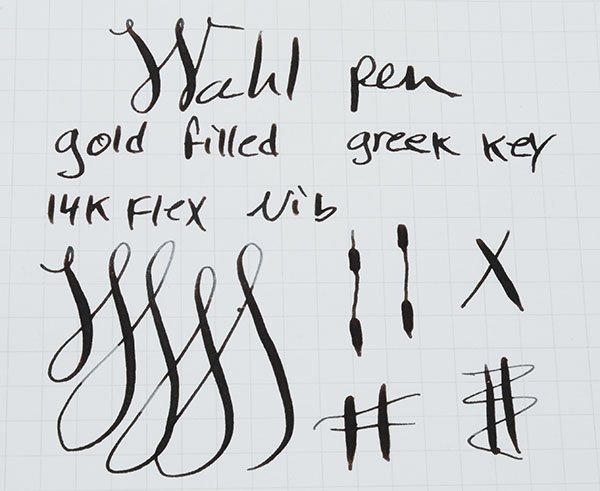 Wahl pen
gold filled greek key
14K Flex Nib